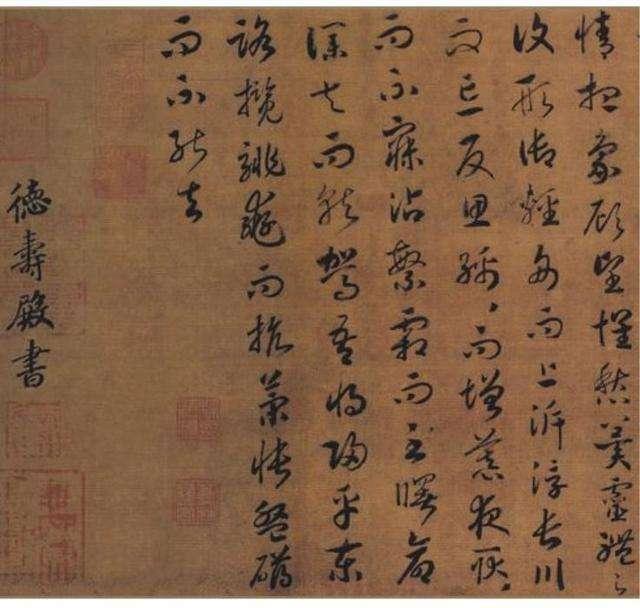 情想象顧望懷愁冀靈體之
復形御輕舟而上泝浮長川
而忘反思綿〻而增慕夜耿〻
而不寐沾繁霜而至曙命
僕夫而就駕吾將歸乎東
路攬騑轡而抗策悵盤
而不能去
德壽殿書